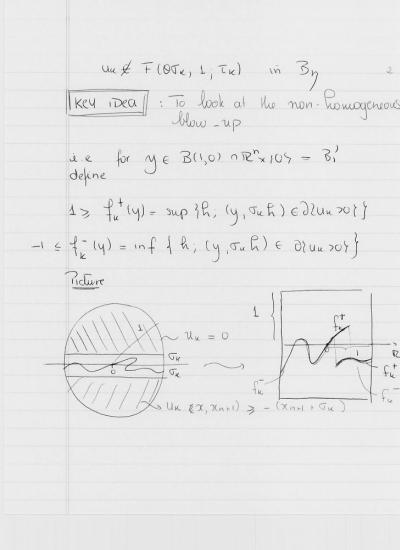 uₖ ∉ F(θσₖ, 1; τₖ) in Bη
2
Key idea : To look at the non-homogeneous
blow-up
i.e for y ∈ B(1,0) ∩ ℝⁿ×{0} = B₁'
define
1 ≥ fₖ⁺(y) = sup {h; (y, σₖh) ∈ ∂{uₖ>0}}
-1 ≤ fₖ⁻(y) = inf {h; (y, σₖh) ∈ ∂{uₖ>0}}
Picture
1 uₖ = 0
σₖ
σₖ
0
uₖ (x, xₙ₊₁) ≥ -(xₙ₊₁ + σₖ)
1 fₖ⁺
0 1 ℝ
fₖ⁺
fₖ⁻ fₖ⁻